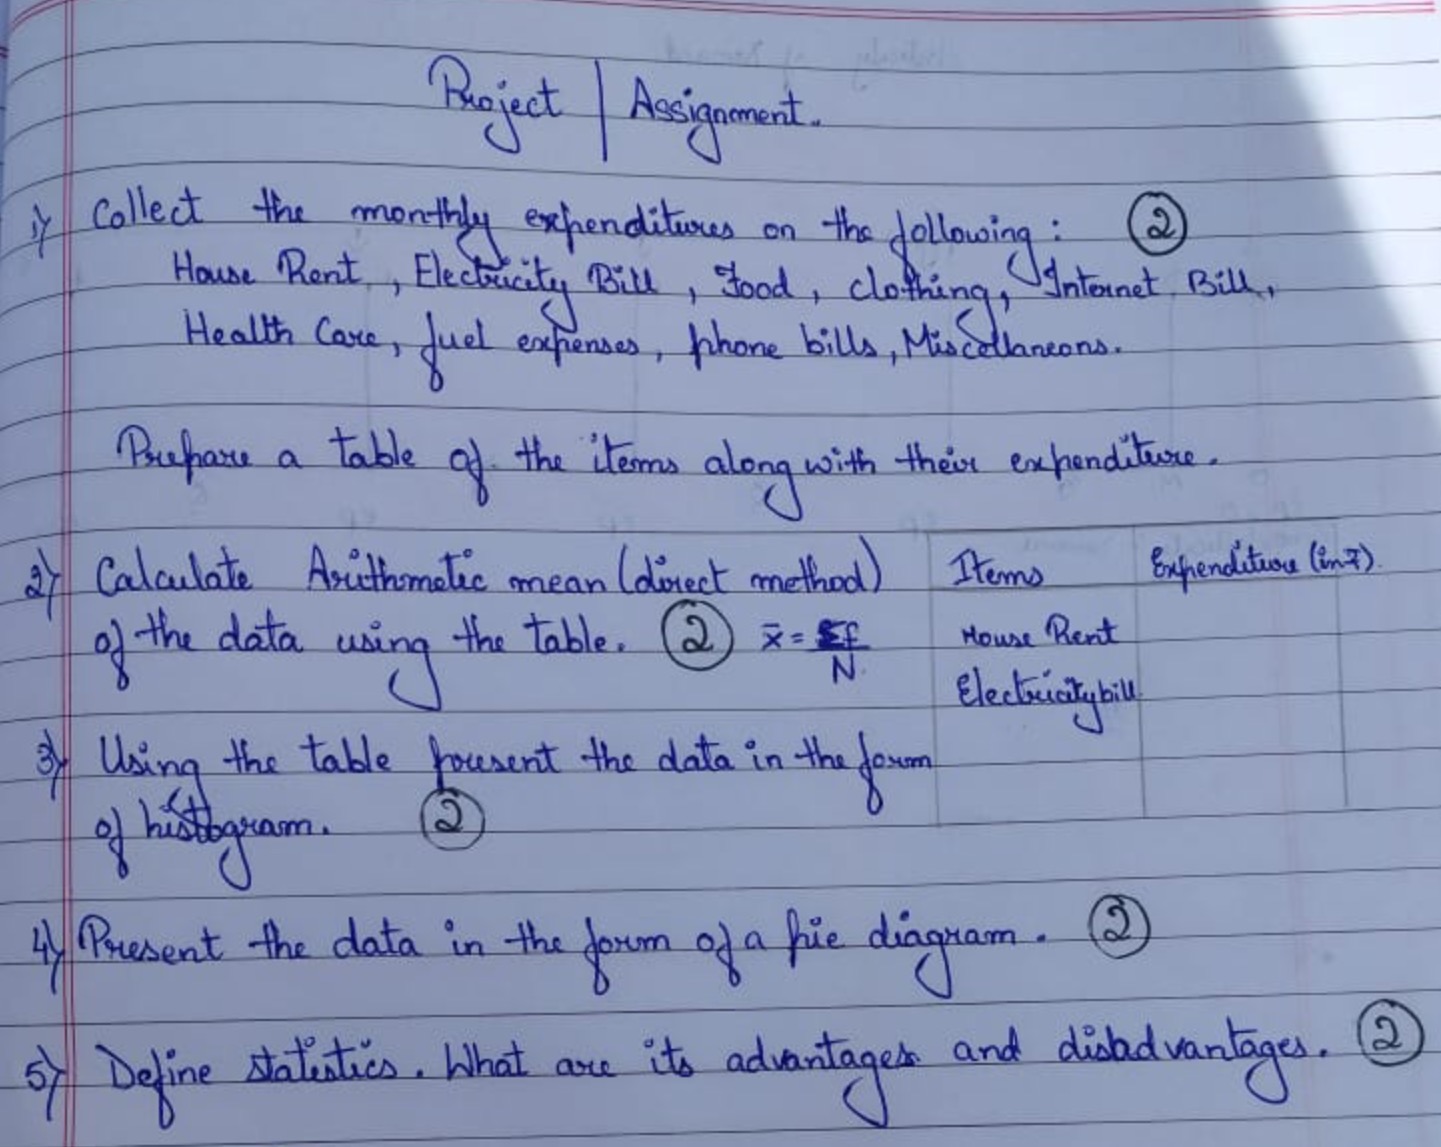 Project | Assignment.
1) Collect the monthly expenditures on the following: 2
House Rent, Electricity Bill, Food, clothing, Internet Bill,
Health Care, fuel expenses, phone bills, Miscellaneons.
Prepare a table of the items along with their expenditure.
2) Calculate Arithmetic mean (direct method)
of the data using the table. 2 x̄ = Σf/N
Items Expenditure (in ₹)
House Rent
Electricity bill
3) Using the table present the data in the form
of histogram. 2
4) Present the data in the form of a pie diagram. 2
5) Define statistics. What are its advantages and disadvantages. 2